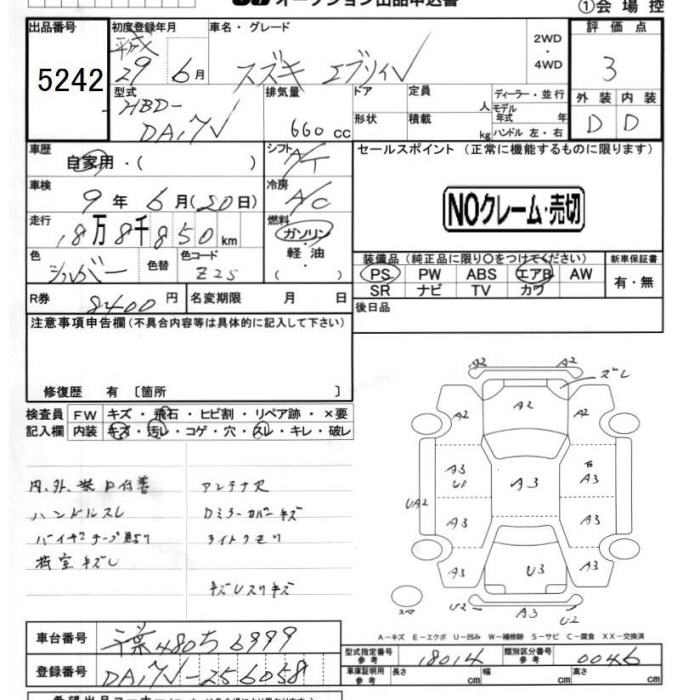 オークション出品申込書
①会場控
出品番号 初度登録年月 車名・グレード 評価点
平成 29年 6月 スズキ エブリィV 2WD・4WD 3
5242
型式 排気量 ドア 定員 ディーラー・並行
HBD-DA17V 660cc 人 モデル年式 年 外装 内装
形状 積載 kg ハンドル 左・右 D D
車歴 シフト セールスポイント (正常に機能するものに限ります)
自家用・( ) A/T
車検 冷房
9年 6月(20日) A/C NOクレーム・売切
走行 燃料
18万8千850km ガソリン
軽油
( )
色 色替 色コード 装備品(純正品に限り○をつけてください) 新車保証書
シルバー Z2S PS PW ABS エアB AW 有・無
SR ナビ TV カワ
R券 8400円 名変期限 月 日 後日品
注意事項申告欄(不具合内容等は具体的に記入して下さい)
修復歴 有 〔箇所 〕
検査員 FW キズ・飛石・ヒビ割・リペア跡・×要
記入欄 内装 キズ・汚レ・コゲ・穴・スレ・キレ・破レ
アンテナ欠
ハンドルスレ Dミラーカバーキズ
ライトクモリ
荷室キズU
キズUスリキズ
A2 A2
ズレ
A2 A2 A2
A3 U1 A3 A3
UA2
A3 A3
A3 U3 A3
U2 A3 U2
A-キズ E-エクボ U-凹み W-補修跡 S-サビ C-腐食 XX-交換済
車台番号 千葉 480 6999
登録番号 DA17V-256058
型式指定番号 参考 18014 類別区分番号 参考 0046
車庫証明用 参考 長さ cm 幅 cm 高さ cm